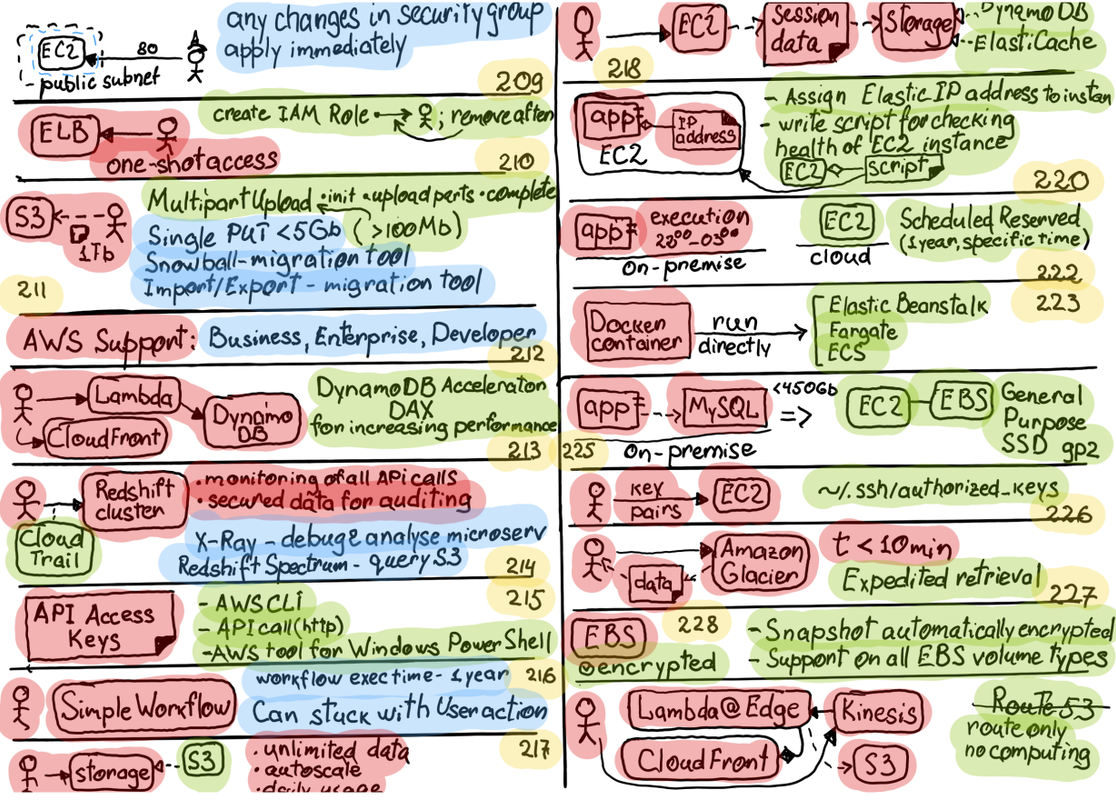 any changes in security group
apply immediately
EC2
80
public subnet
209
ELB
one-shot access
create IAM Role
; remove after
210
S3
1Tb
Multipart Upload •init •upload parts •complete
(>100Mb)
Single PUT <5Gb
Snowball-migration tool
Import/Export - migration tool
211
AWS Support: Business, Enterprise, Developer
212
Lambda
CloudFront
Dynamo
DB
DynamoDB Accelerator
DAX
for increasing performance
213
Redshift
cluster
Cloud
Trail
•monitoring of all API calls
•secured data for auditing
X-Ray - debug & analyse microserv
Redshift Spectrum - query S3
214
API Access
Keys
- AWS CLI
- API call (http)
-AWS tool for Windows PowerShell
215
Simple Workflow
workflow exec time - 1 year
Can stuck with User action
216
storage
S3
• unlimited data
• autoscale
• daily usage
217
EC2
Session
data
Storage
DynamoDB
ElastiCache
218
app
IP
address
EC2
- Assign Elastic IP address to instan
- write script for checking
health of EC2 instance
EC2
script
220
app
execution
22⁰⁰-03⁰⁰
on-premise
EC2
cloud
Scheduled Reserved
(1 year, specific time)
222
Docker
container
run
directly
Elastic Beanstalk
Fargate
ECS
223
app
MySQL
on-premise
<450Gb
=>
EC2
EBS
General
Purpose
SSD gp2
225
key
pairs
EC2
~/.ssh/authorized_keys
226
data
Amazon
Glacier
t < 10min
Expedited retrieval
227
EBS
encrypted
228
- Snapshot automatically encrypted
- Support on all EBS volume types
Lambda@Edge
CloudFront
Kinesis
S3
Route 53
route only
no computing